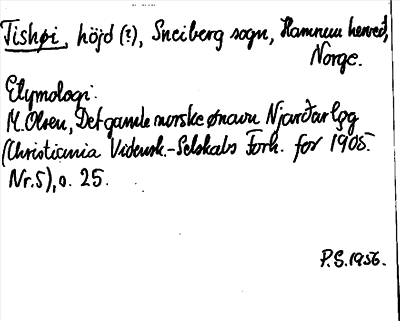 Tishøi, höjd (?), Sneiberg sogn, Hamnum herred,
Norge.
Etymologi:
M. Olsen, Det gamle norske ønavn Njarðarlǫg
(Christiania Vidensk.-Selskabs Forh. for 1905.
Nr. 5), s. 25.
P.S. 1956.